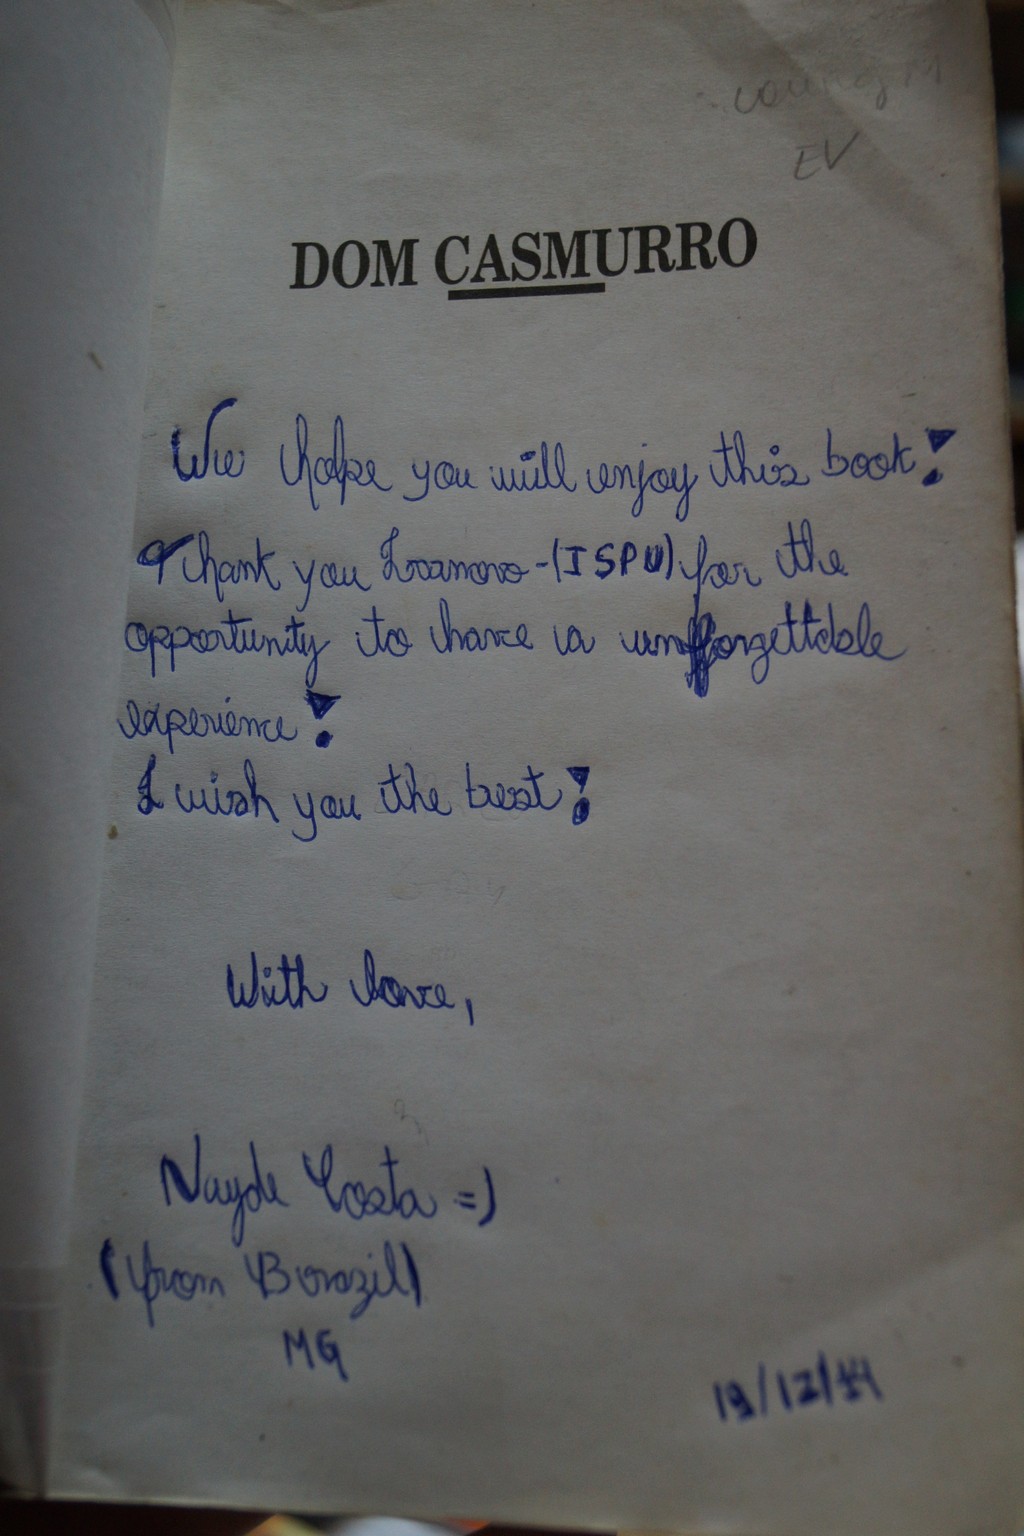 EV
DOM CASMURRO
We hope you will enjoy this book!
Thank you Ivanovo-(ISPU) for the
opportunity to have a unfforgettable
experience!
I wish you the best!
With love,
Nayde Costa =)
(from Brazil)
MG
19/12/14